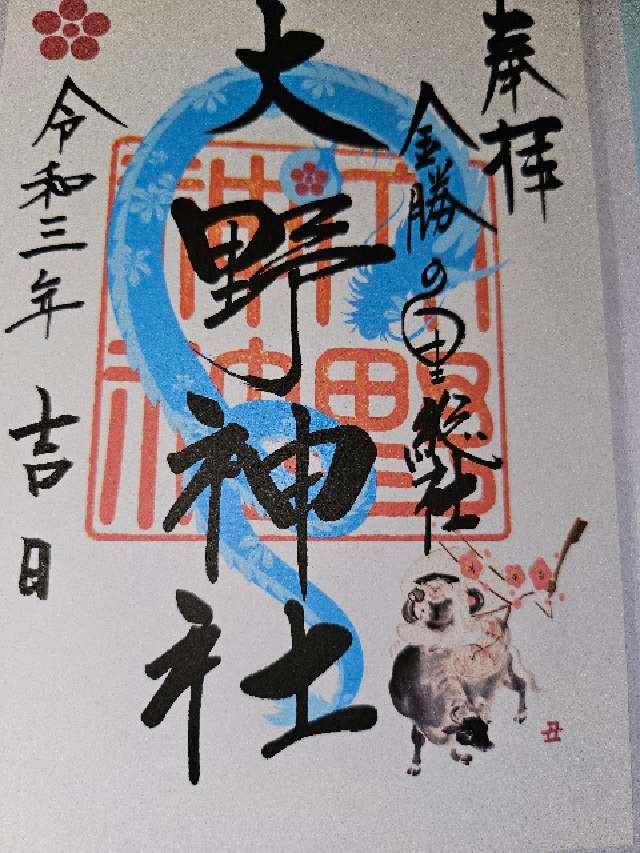 奉拝
金勝の里総社
大野神社
令和三年 吉日
丑